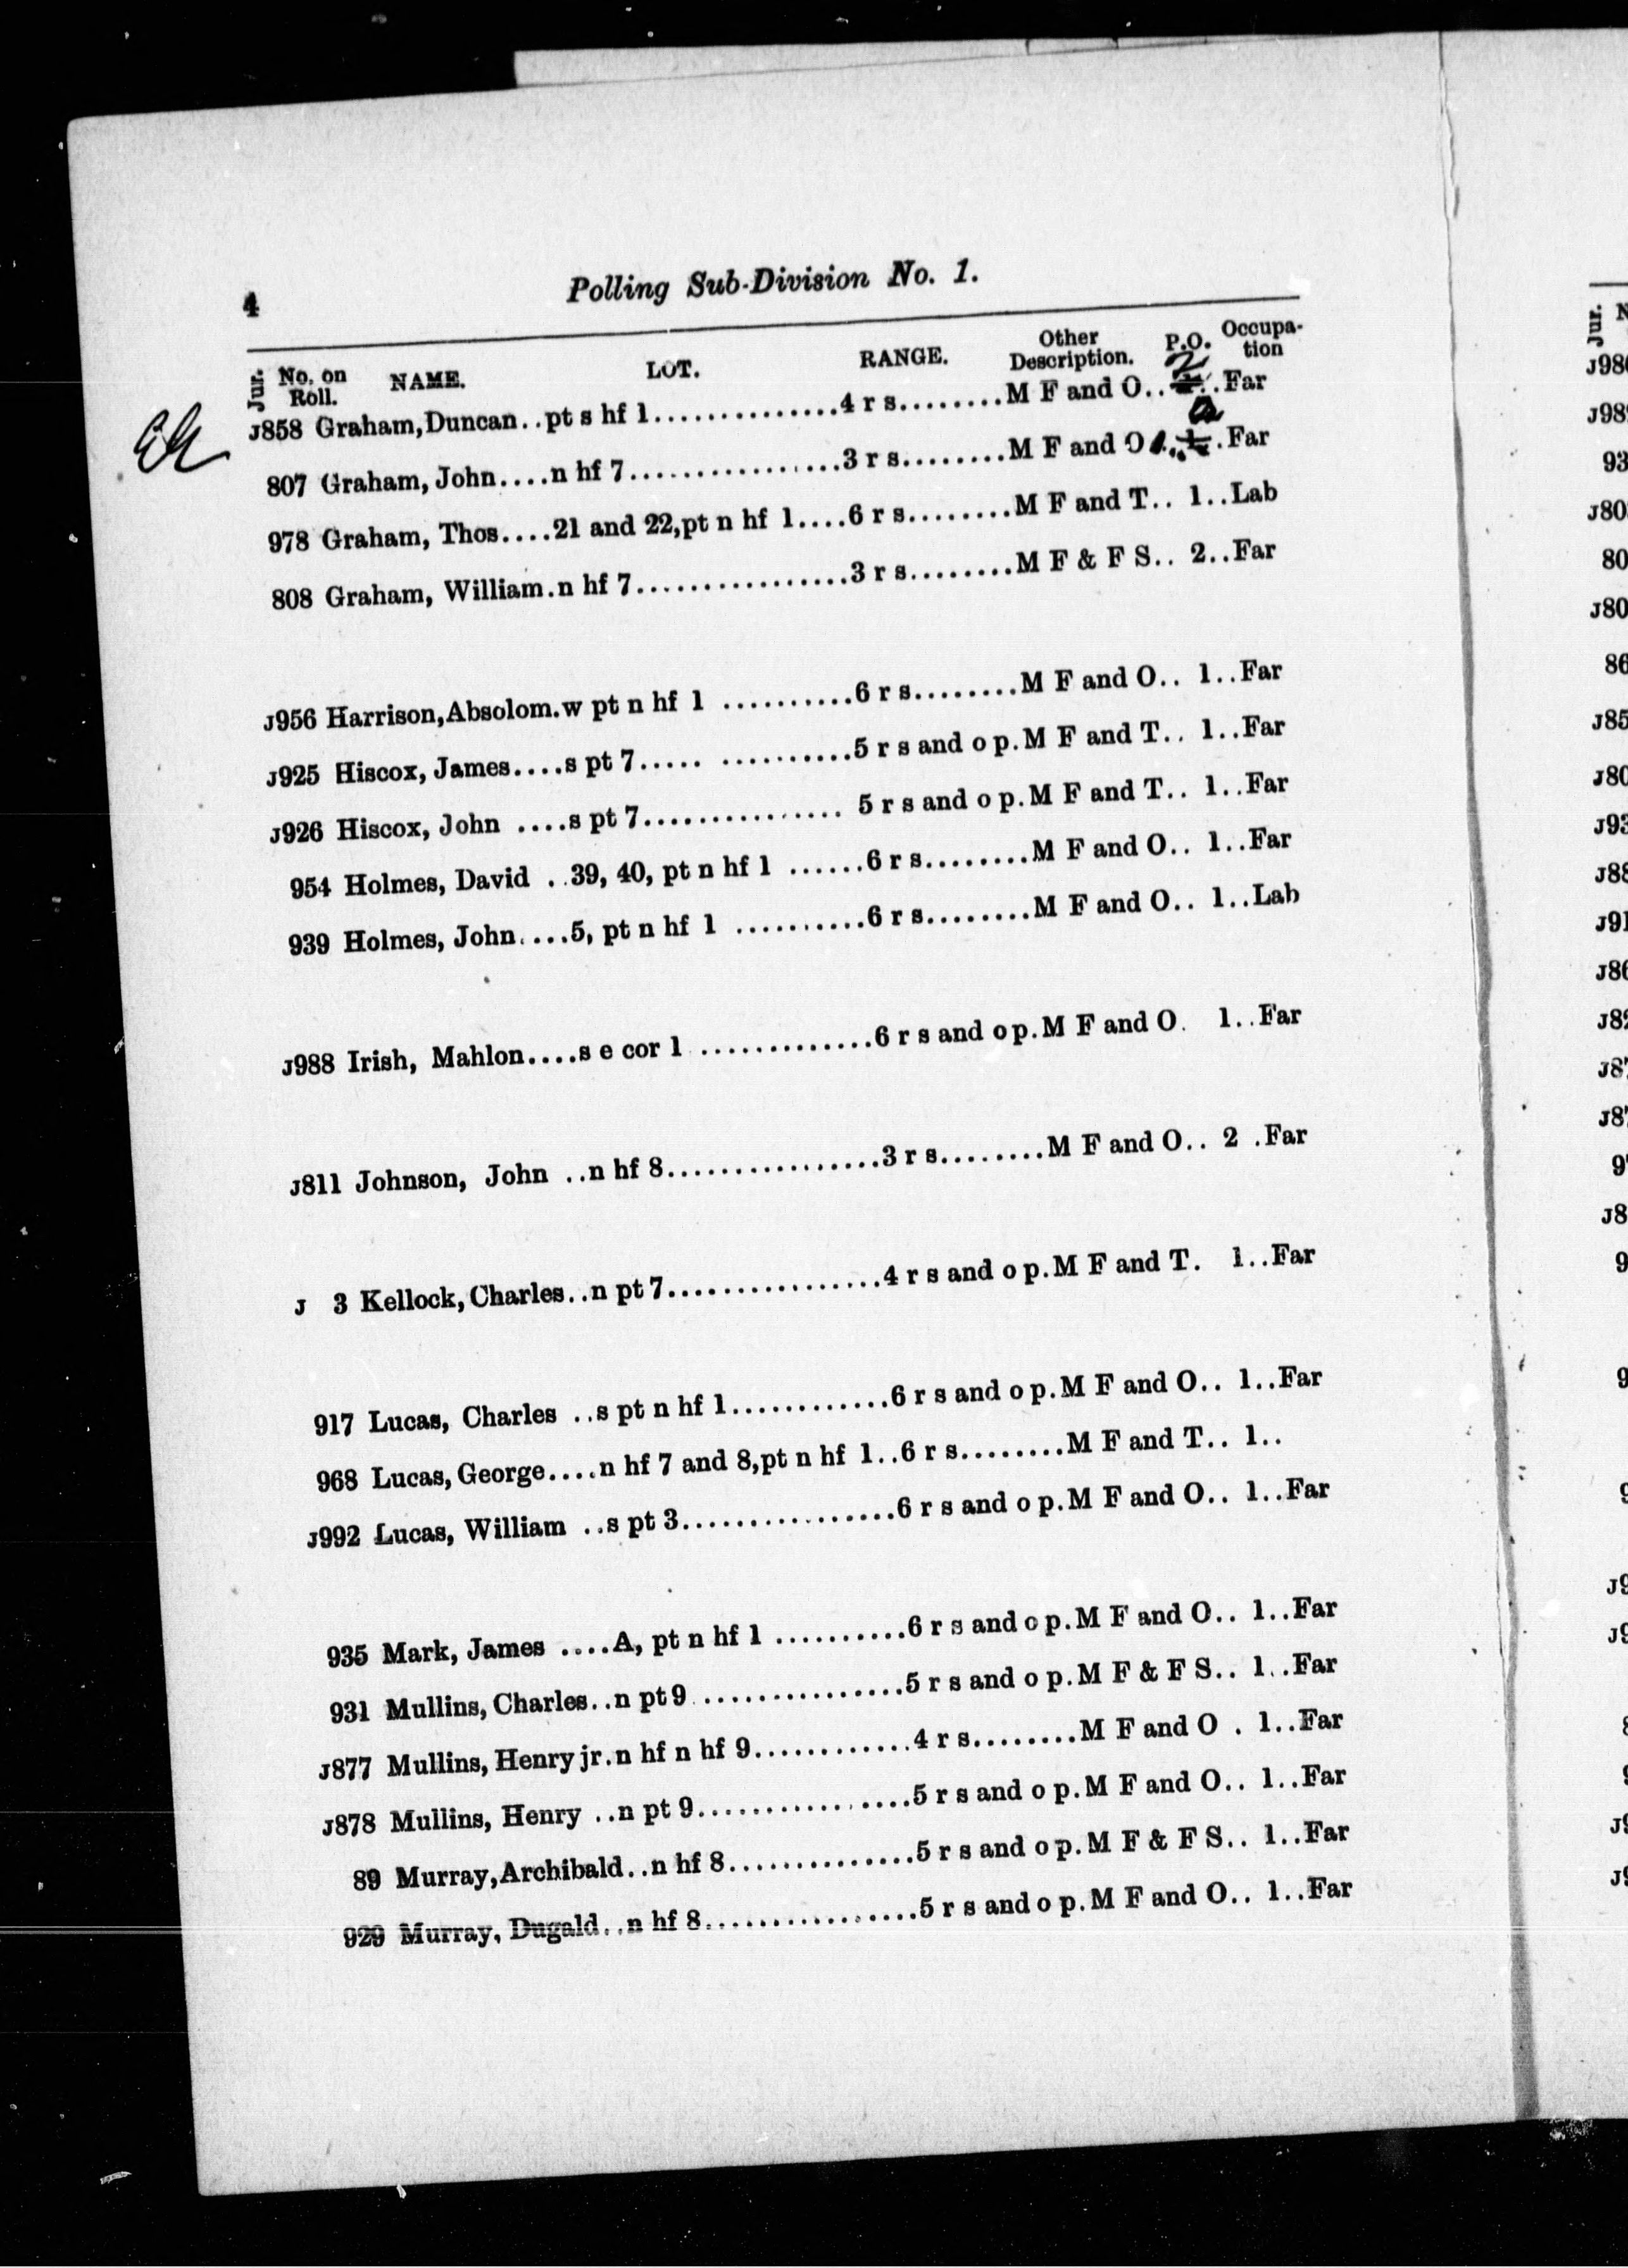 4 Polling Sub-Division No. 1.
Jur. No. on Roll. NAME. LOT. RANGE. Other Description. P.O. Occupa-tion
J858 Graham, Duncan..pt s hf 1..............4 r s........M F and O.. 2..Far
807 Graham, John....n hf 7................3 r s........M F and O...Far
978 Graham, Thos....21 and 22, pt n hf 1....6 r s........M F and T.. 1..Lab
808 Graham, William.n hf 7................3 r s........M F & F S.. 2..Far
J956 Harrison, Absolom.w pt n hf 1 ..........6 r s........M F and O.. 1..Far
J925 Hiscox, James....s pt 7..... ..........5 r s and o p.M F and T.. 1..Far
J926 Hiscox, John ....s pt 7............... 5 r s and o p.M F and T.. 1..Far
954 Holmes, David ..39, 40, pt n hf 1 ......6 r s........M F and O.. 1..Far
939 Holmes, John....5, pt n hf 1 ..........6 r s........M F and O.. 1..Lab
J988 Irish, Mahlon....s e cor 1 .............6 r s and o p.M F and O. 1..Far
J811 Johnson, John ..n hf 8................3 r s........M F and O.. 2 .Far
J 3 Kellock, Charles..n pt 7................4 r s and o p.M F and T. 1..Far
917 Lucas, Charles ..s pt n hf 1............6 r s and o p.M F and O.. 1..Far
968 Lucas, George....n hf 7 and 8, pt n hf 1..6 r s........M F and T.. 1..
J992 Lucas, William ..s pt 3................6 r s and o p.M F and O.. 1..Far
935 Mark, James ....A, pt n hf 1 ..........6 r s and o p.M F and O.. 1..Far
931 Mullins, Charles..n pt 9 ...............5 r s and o p.M F & F S.. 1..Far
J877 Mullins, Henry jr.n hf n hf 9............4 r s........M F and O . 1..Far
J878 Mullins, Henry ..n pt 9................5 r s and o p.M F and O.. 1..Far
89 Murray, Archibald..n hf 8..............5 r s and o p.M F & F S.. 1..Far
929 Murray, Dugald..n hf 8................5 r s and o p.M F and O.. 1..Far